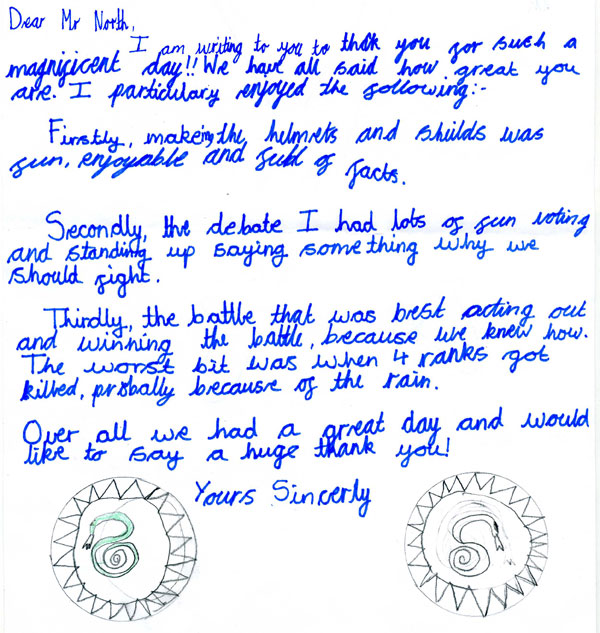 Dear Mr North,
I am writing to you to thak you for such a
magnificent day!! We have all said how great you
are. I particulary enjoyed the following:-
Firstly, makeing the helmets and shilds was
fun, enjoyable and full of facts.
Secondly, the debate I had lots of fun voting
and standing up saying something why we
should fight.
Thirdly, the battle that was best acting out
and winning the battle, because we knew how.
The worst bit was when 4 ranks got
killed, probally because of the rain.
Over all we had a great day and would
like to say a huge thank you!
Yours Sincerly